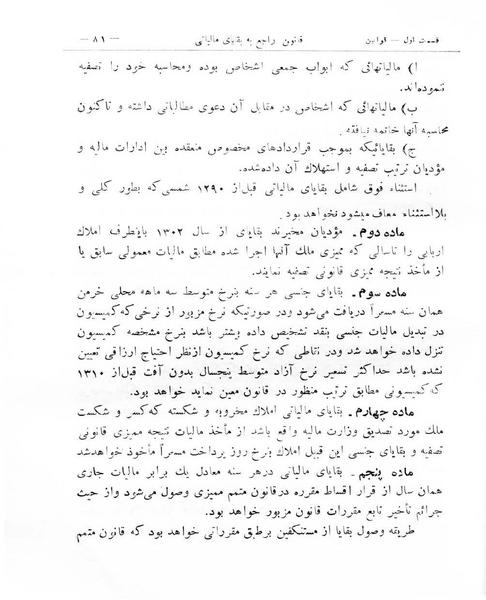 قسمت اول — قوانین
قانون راجع به بقایای مالیاتی
— ۸۱ —
ا) مالیاتهائی که ابواب جمعی اشخاص بوده ومحاسبه خود را تصفیه
ننموده‌اند.
ب) مالیاتهائی که اشخاص در مقابل آن دعوی مطالباتی داشته و تاکنون
محاسبه آنها خاتمه نیافته.
ج) بقایائیکه بموجب قراردادهای مخصوص منعقده بین ادارات مالیه و
مؤدیان ترتیب تصفیه و استهلاک آن داده‌شده.
استثناء فوق شامل بقایای مالیاتی قبل‌از ۱۲۹۰ شمسی‌که بطور کلی و
بلااستثناء معاف میشود نخواهد بود.
ماده دوم ـ مؤدیان مخیرند بقایای از سال ۱۳۰۲ باینطرف املاک
اربابی را تاسالی که ممیزی ملک آنها اجرا شده مطابق مالیات معمولی سابق یا
از مأخذ نتیجه ممیزی قانونی تصفیه نمایند.
ماده سوم ـ بقایای جنسی هر سنه بنرخ متوسط سه ماهه محلی خرمن
همان سنه مسعراً دریافت می‌شود ودر صورتیکه نرخ مزبور از نرخی‌که کمیسیون
در تبدیل مالیات جنسی بنقد تشخیص داده بیشتر باشد بنرخ مشخصه کمیسیون
تنزل داده خواهد شد ودر نقاطی که نرخ کمیسیون ازنظر احتیاج ارزاقی تعیین
نشده باشد حداکثر تسعیر نرخ آزاد متوسط پنجسال بدون آفت قبل‌از ۱۳۱۰
که کمیسیونی مطابق ترتیب منظور در قانون معین نماید خواهد بود.
ماده چهارم ـ بقایای مالیاتی املاک مخروبه و شکسته که‌کسر و شکست
ملک مورد تصدیق وزارت مالیه واقع باشد از مأخذ مالیات نتیجه ممیزی قانونی
تصفیه و بقایای جنسی این قبیل املاک بنرخ روز پرداخت مسعراً مأخوذ خواهدشد
ماده پنجم ـ بقایای مالیاتی درهر سنه معادل یک برابر مالیات جاری
همان سال از قرار اقساط مقرره درقانون متمم ممیزی وصول می‌شود واز حیث
جرائم تأخیر تابع مقررات قانون مزبور خواهد بود.
طریقه وصول بقایا از مستنکفین برطبق مقرراتی خواهد بود که قانون متمم